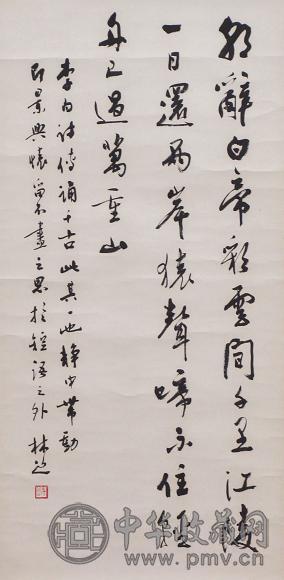 朝辭白帝彩雲間千里江陵
一日還兩岸猿聲啼不住輕
舟已過萬重山
李白詩傳誦千古此其一也静中帶動
即景興懷留不盡之思於短語之外 林逸
中华收藏网
www.pmv.cn